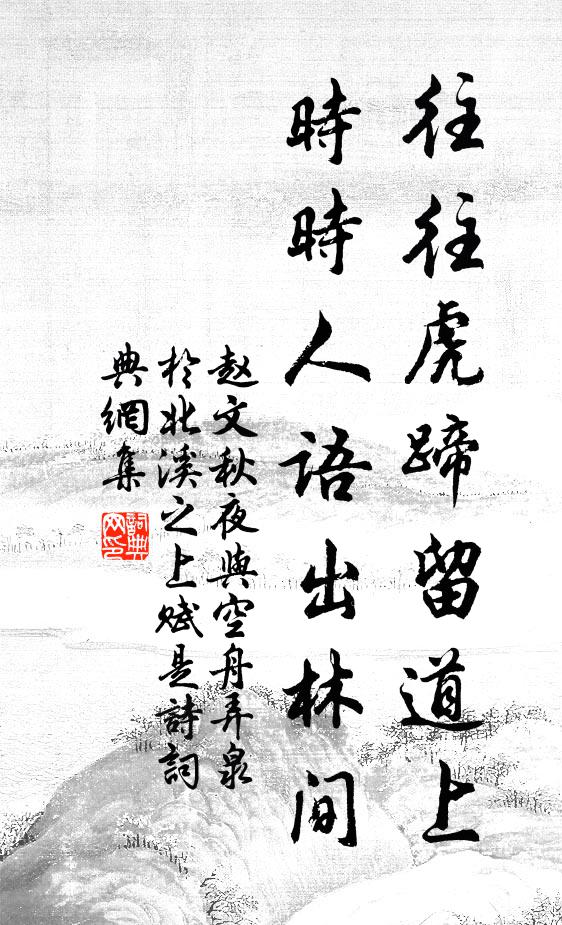 往往虎蹄留道上
時時人語出林间
赵文秋夜與空舟弄泉
於北溪之上赋是詩詞
典網集
詞典
网印